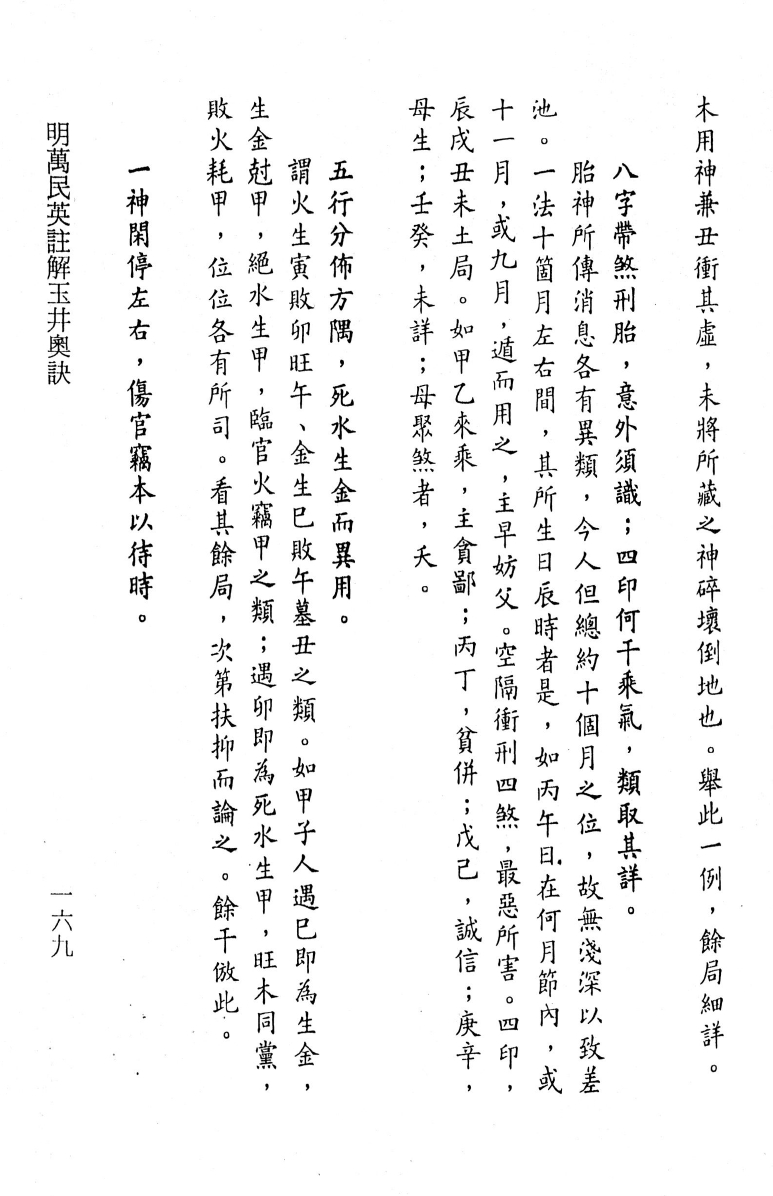 木用神兼丑衝其虛，未將所藏之神碎壞倒地也。舉此一例，餘局細詳。
八字帶煞刑胎，意外須識；四印何干乘氣，類取其詳。
胎神所傳消息各有異類，今人但總約十個月之位，故無淺深以致差
池。一法十箇月左右間，其所生日辰時者是，如丙午日在何月節內，或
十一月，或九月，遁而用之，主早妨父。空隔衝刑四煞，最惡所害。四印，
辰戌丑未土局。如甲乙來乘，主貪鄙；丙丁，貧併；戊己，誠信；庚辛，
母生；壬癸，未詳；母聚煞者，夭。
五行分佈方隅，死水生金而異用。
謂火生寅敗卯旺午、金生巳敗午墓丑之類。如甲子人遇巳即為生金，
生金尅甲，絕水生甲，臨官火竊甲之類；遇卯即為死水生甲，旺木同黨，
敗火耗甲，位位各有所司。看其餘局，次第扶抑而論之。餘干倣此。
一神閑停左右，傷官竊本以待時。
明萬民英註解玉井奧訣
一六九